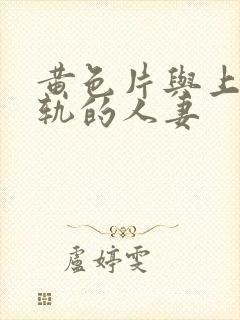 黄色片與上
軌的人妻
盧婷雯